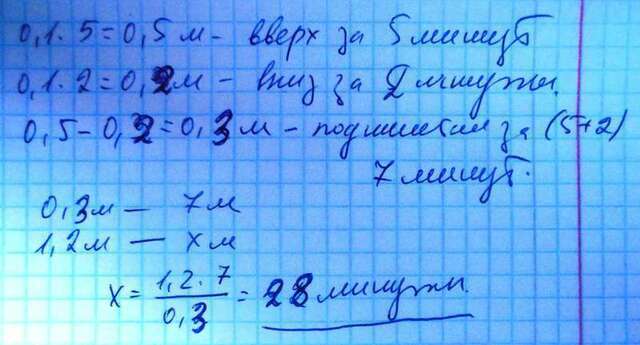 0,1·5=0,5м- вверх за 5минут
0,1·2=0,2м - вниз за 2 минуты.
0,5-0,2=0,3м - поднимется за (5+2)
7 минут.
0,3м — 7м
1,2м — xм
x= 1,2·7/0,3 = 28 минуты